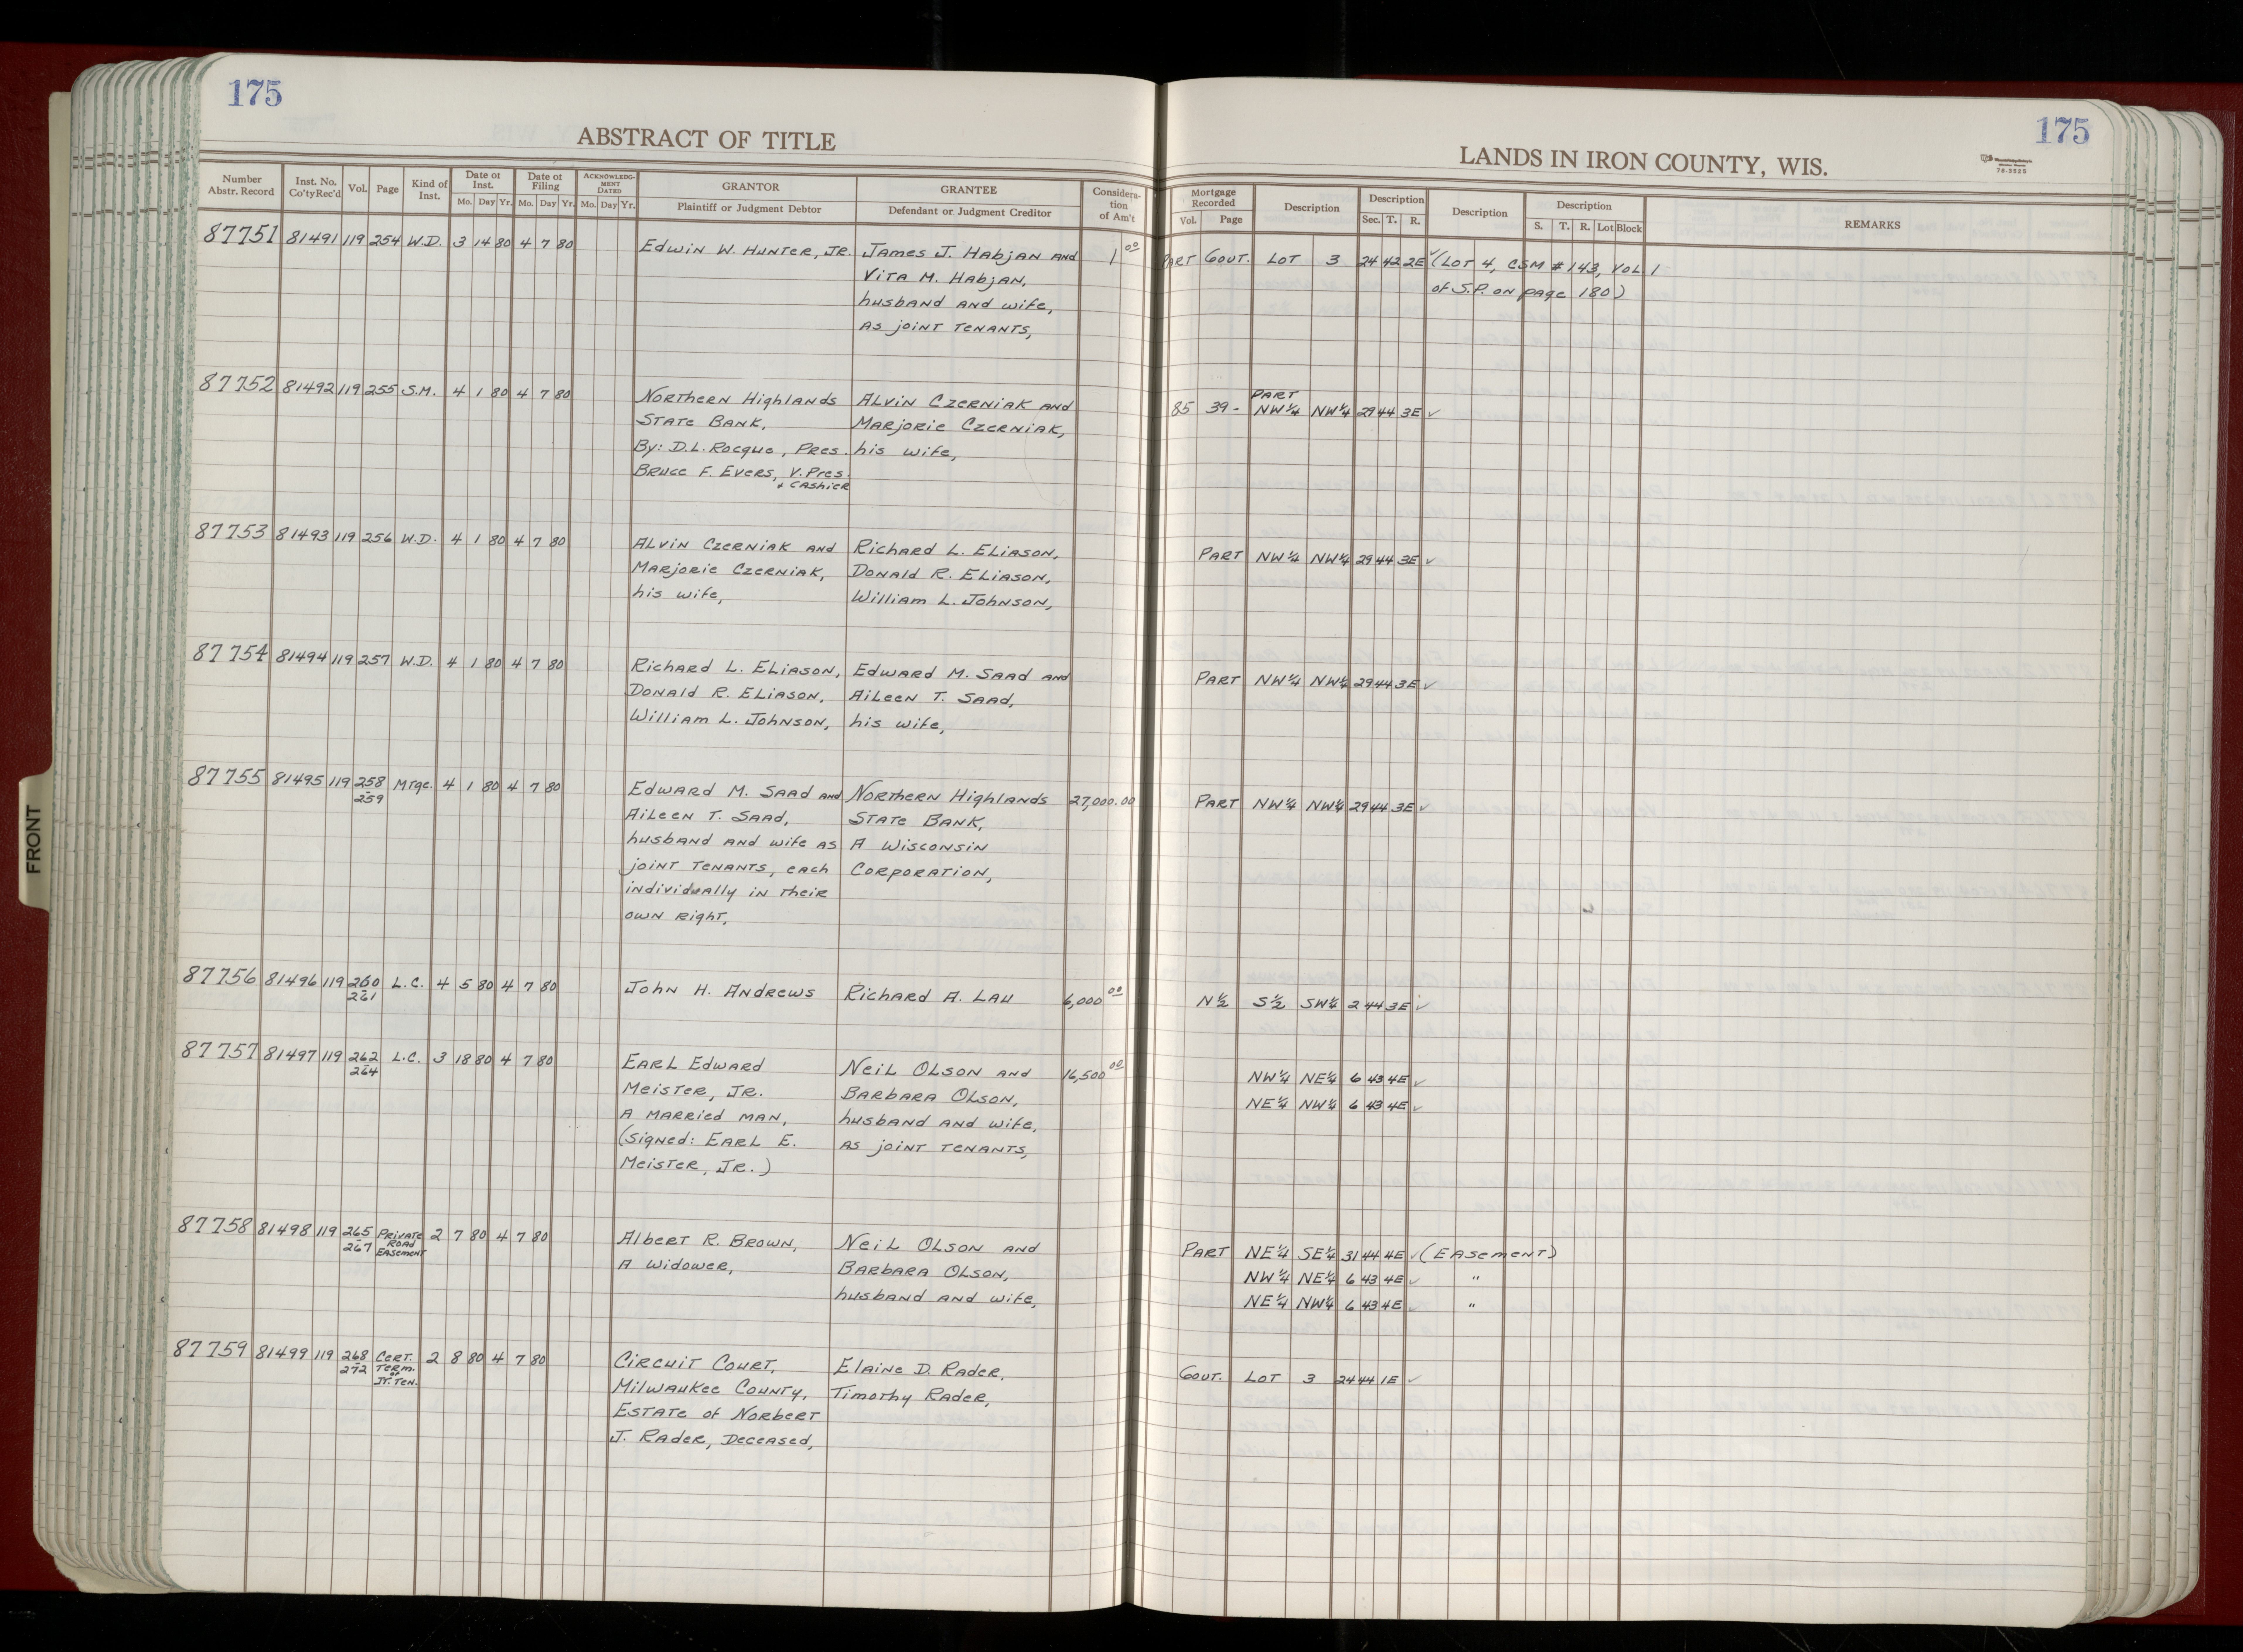 175
175
ABSTRACT OF TITLE
LANDS IN IRON COUNTY, WIS.
78-3525
Number Abstr. Record Inst. No. Co'ty Rec'd Vol. Page Kind of Inst. Date of Inst. Mo. Day Yr. Date of Filing Mo. Day Yr. ACKNOWLEDGMENT DATED Mo. Day Yr. GRANTOR Plaintiff or Judgment Debtor GRANTEE Defendant or Judgment Creditor Consideration of Am't Mortgage Recorded Vol. Page Description Description Sec. T. R. Description Description S. T. R. Lot Block REMARKS
87751 81491 119 254 W.D. 3 14 80 4 7 80 Edwin W. Hunter, Jr. James J. Habjan and 1 00 Part Gout. Lot 3 24 42 2E ✓ (Lot 4, CSM #143, Vol 1
Vita M. Habjan, of S.P. on page 180)
husband and wife,
as joint tenants,
87752 81492 119 255 S.M. 4 1 80 4 7 80 Northern Highlands Alvin Czerniak and 85 39- Part NW¼ NW¼ 29 44 3E ✓
State Bank, Marjorie Czerniak,
By: D.L. Rocque, Pres. his wife,
Bruce F. Evers, V. Pres.
& Cashier
87753 81493 119 256 W.D. 4 1 80 4 7 80 Alvin Czerniak and Richard L. Eliason, Part NW¼ NW¼ 29 44 3E ✓
Marjorie Czerniak, Donald R. Eliason,
his wife, William L. Johnson,
87754 81494 119 257 W.D. 4 1 80 4 7 80 Richard L. Eliason, Edward M. Saad and Part NW¼ NW¼ 29 44 3E ✓
Donald R. Eliason, Aileen T. Saad,
William L. Johnson, his wife,
87755 81495 119 258-259 Mtge. 4 1 80 4 7 80 Edward M. Saad and Northern Highlands 27,000.00 Part NW¼ NW¼ 29 44 3E ✓
Aileen T. Saad, State Bank,
husband and wife as A Wisconsin
joint tenants, each Corporation,
individually in their
own right,
87756 81496 119 260-261 L.C. 4 5 80 4 7 80 John H. Andrews Richard A. Lau 6,000 00 N½ S½ SW¼ 2 44 3E ✓
87757 81497 119 262-264 L.C. 3 18 80 4 7 80 Earl Edward Neil Olson and 16,500 00 NW¼ NE¼ 6 43 4E ✓
Meister, Jr. Barbara Olson, NE¼ NW¼ 6 43 4E ✓
A married man, husband and wife,
(signed: Earl E. as joint tenants,
Meister, Jr.)
87758 81498 119 265-267 Private Road Easement 2 7 80 4 7 80 Albert R. Brown, Neil Olson and Part NE¼ SE¼ 31 44 4E ✓ (Easement)
A widower, Barbara Olson, NW¼ NE¼ 6 43 4E ✓ "
husband and wife, NE¼ NW¼ 6 43 4E ✓ "
87759 81499 119 268-272 Cert. Term. of Jt. Ten. 2 8 80 4 7 80 Circuit Court, Elaine D. Rader, Gout. Lot 3 24 44 1E ✓
Milwaukee County, Timothy Rader,
Estate of Norbert
J. Rader, Deceased,
FRONT